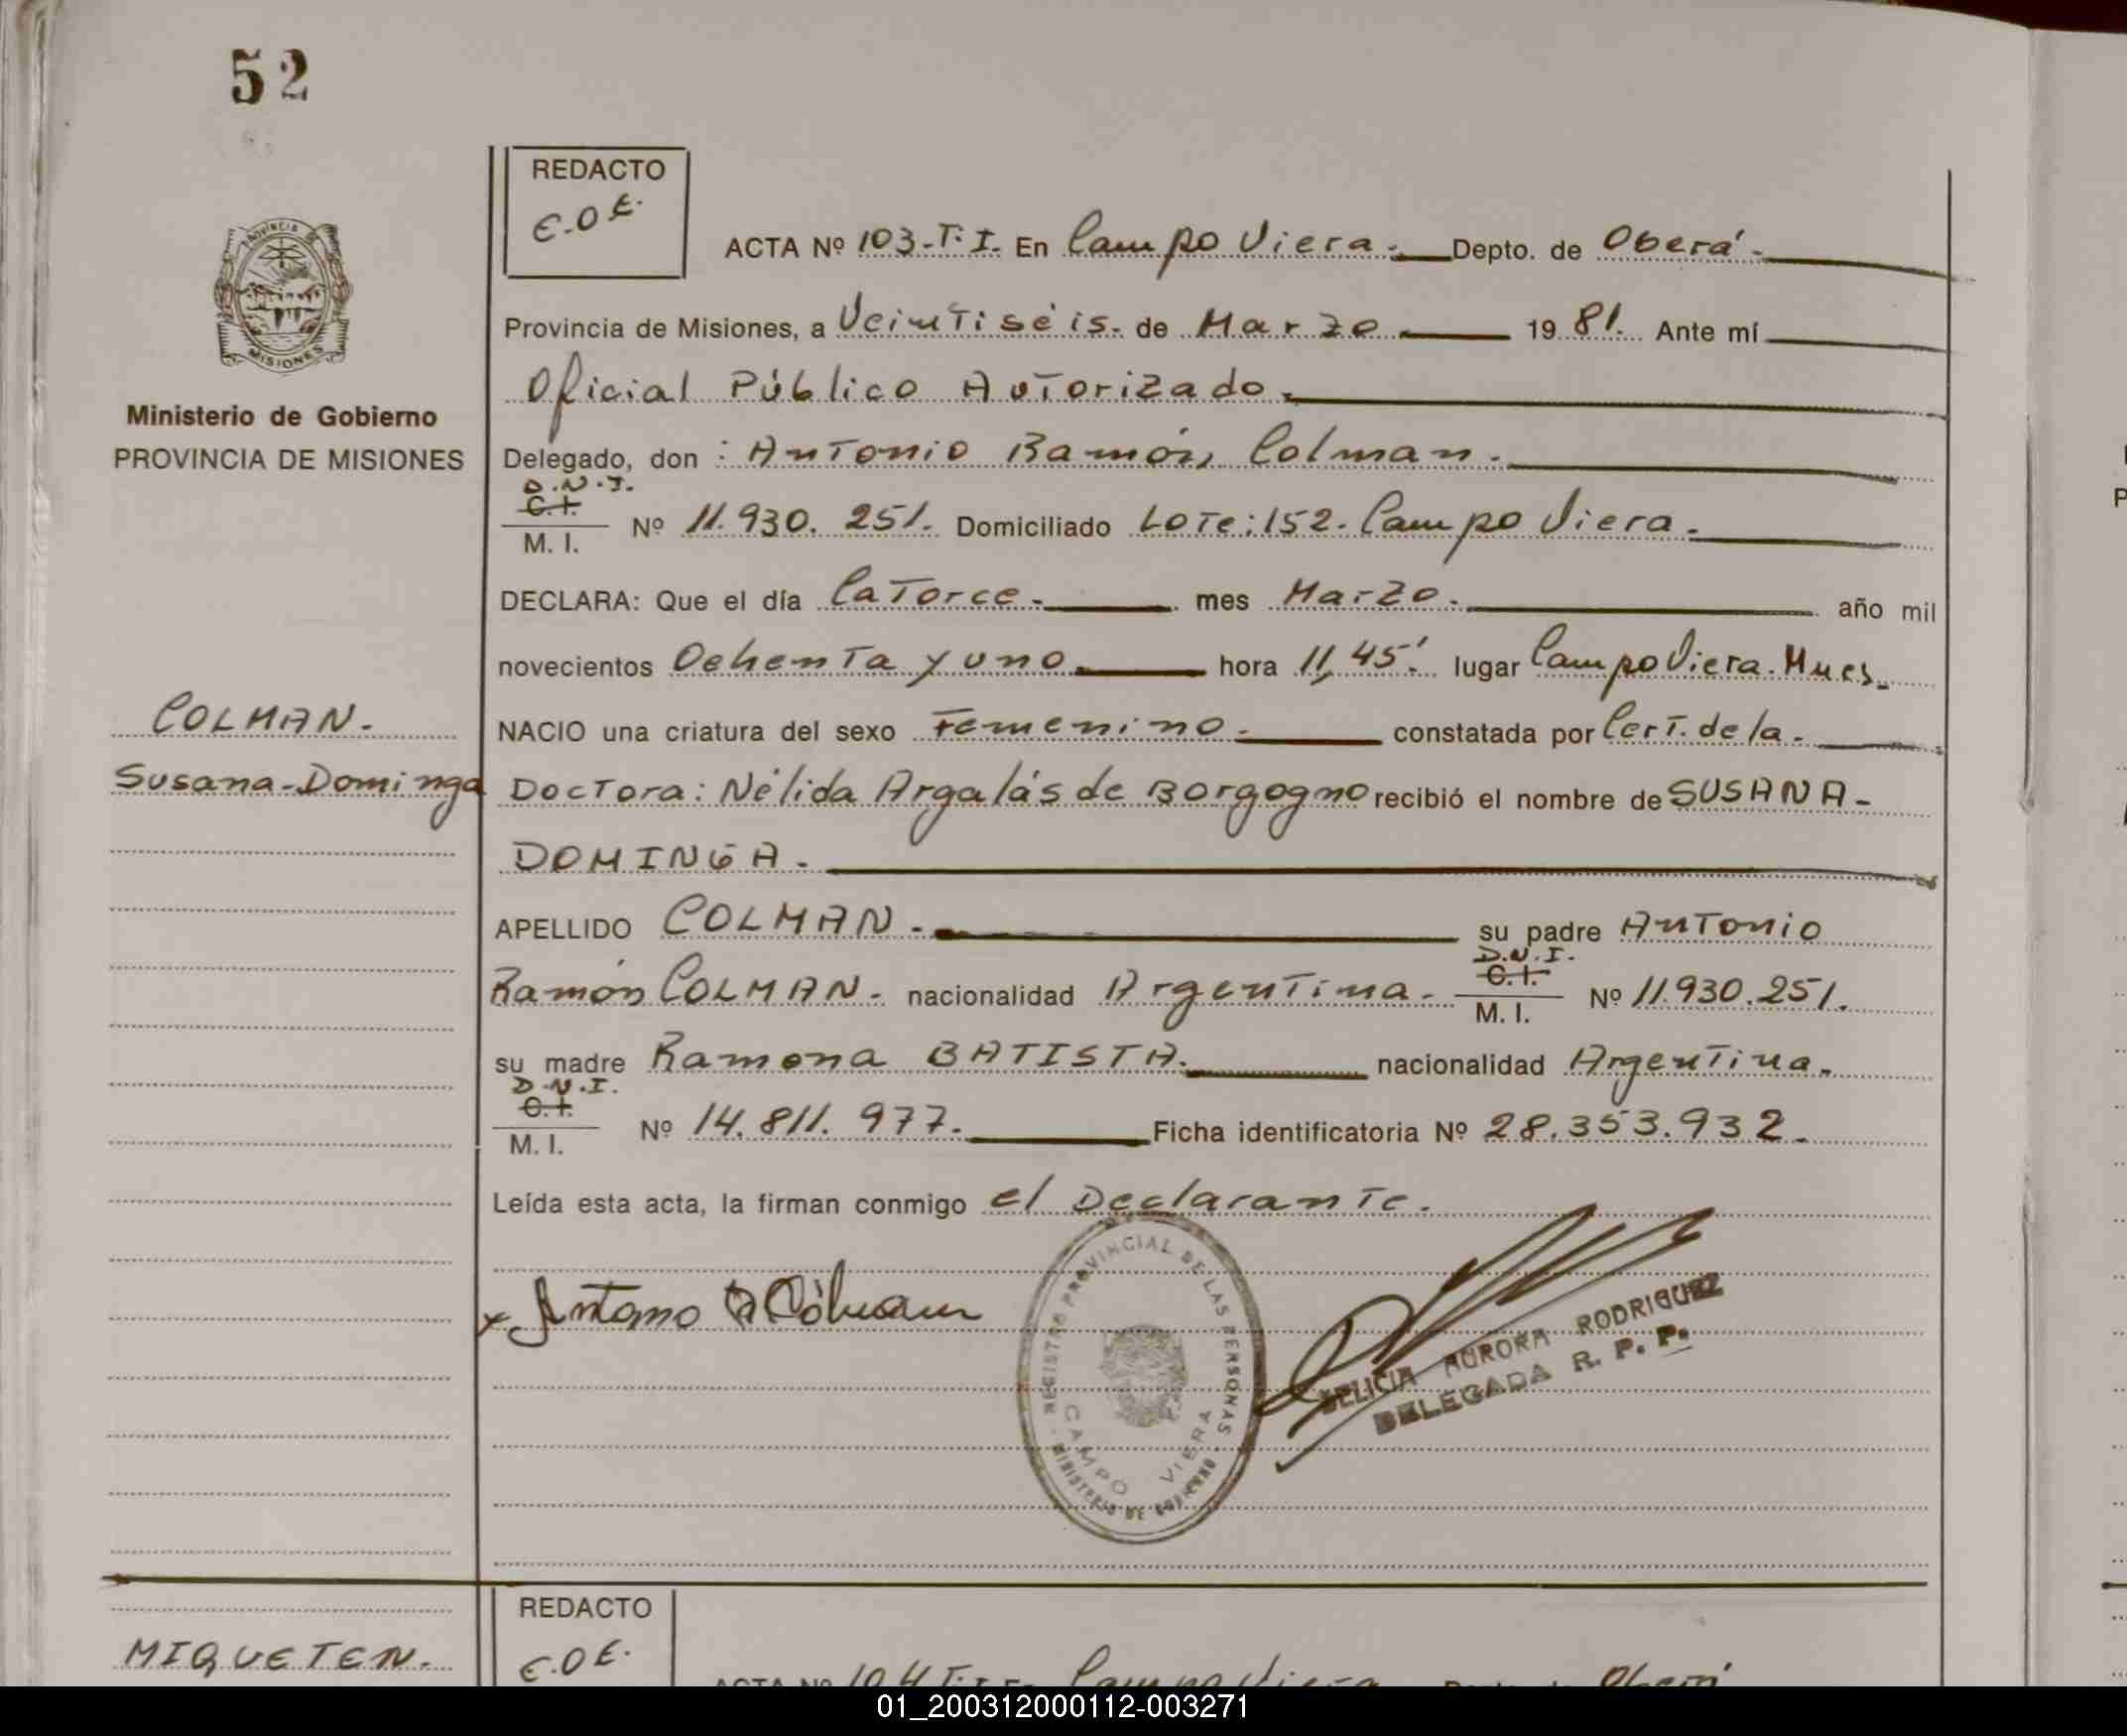 52
REDACTO
E.O.E.
ACTA Nº 103-T.I. En Campo Viera.- Depto. de Oberá.-
Provincia de Misiones, a Veintiséis. de Marzo 1981. Ante mí
Oficial Público Autorizado.
PROVINCIA DE
MISIONES
Ministerio de Gobierno
PROVINCIA DE MISIONES
Delegado, don : Antonio Ramón, Colman.
D.N.I.
C.I.
M. I. Nº 11.930.251. Domiciliado Lote:152. Campo Viera.
DECLARA: Que el día Catorce. mes Marzo. año mil
novecientos Ochenta y uno hora 11,45' lugar Campo Viera. Mnes.
COLMAN.-
NACIO una criatura del sexo Femenino. constatada por Cert. de la.
Susana-Dominga
Doctora: Nélida Argalás de Borgogno recibió el nombre de SUSANA-
DOMINGA.
APELLIDO COLMAN. su padre Antonio
D.N.I.
C.I.
Ramón COLMAN. nacionalidad Argentina. M. I. Nº 11.930.251.
su madre Ramona BATISTA. nacionalidad Argentina.
D.N.I.
C.I.
M. I. Nº 14.811.977. Ficha identificatoria Nº 28.353.932.
Leída esta acta, la firman conmigo el Declarante.
x Antonio R Cólman
REGISTRO PROVINCIAL DE LAS PERSONAS
CAMPO VIERA
MINISTERIO DE GOBIERNO
DELICIA AURORA RODRIGUEZ
DELEGADA R. P. P.
REDACTO
E.O.E.
MIQUETEN.
ACTA Nº 104 T.I. En Campo Viera Depto. de Oberá
01_200312000112-003271